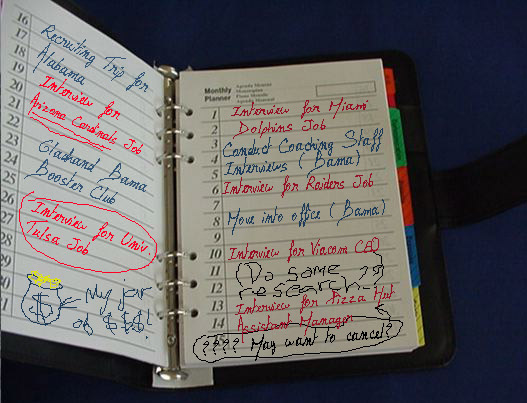 16
17 Recruiting Trip for
18 Alabama
19
20 Interview for
21 Arizona Cardinals Job
22
23
24 Gladhand Bama
25 Booster Club
26 Interview for Univ.
27 Tulsa Job
28
$ My jar
30 of $$$!
Monthly
Planner
Agenda Mensuel
Agenda Mensual
1 Interview for Miami
2 Dolphins Job
3 Conduct Coaching Staff
4 Interviews (Bama)
5
6 Interview for Raiders Job
7
8 Move into office (Bama)
9
10 Interview for Viacom CEO
11 (Do some
12 research!)
13 Interview for Pizza Hut
14 Assistant Manager
???? May want to cancel?